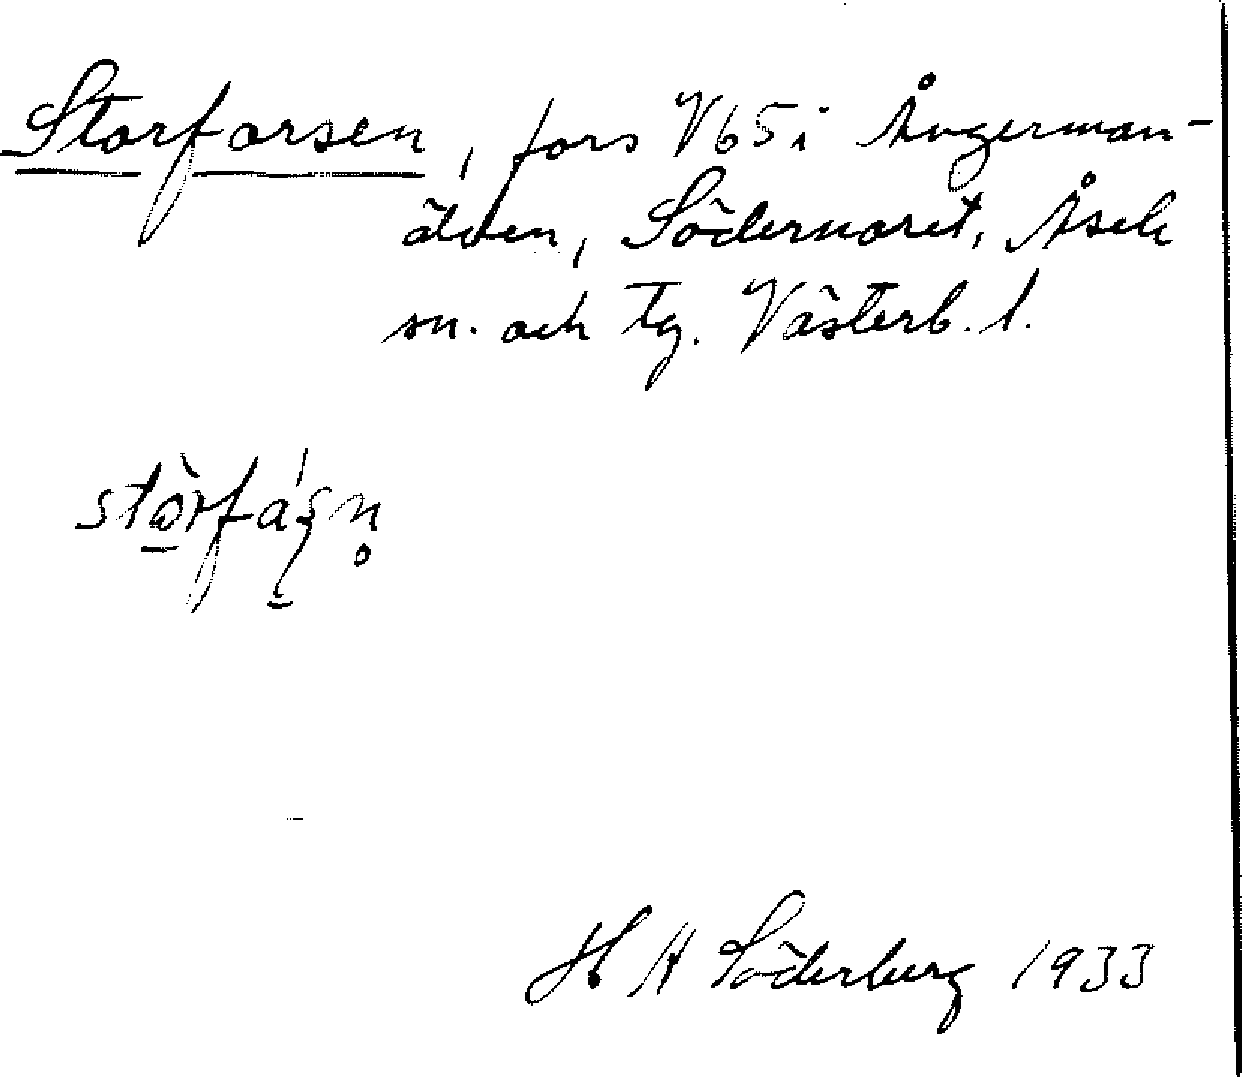 Storforsen, fors V65 i Ångerman-
älven, Södernoret, Åsele
sn. och tg. Västerb. l.
H A Söderberg 1933